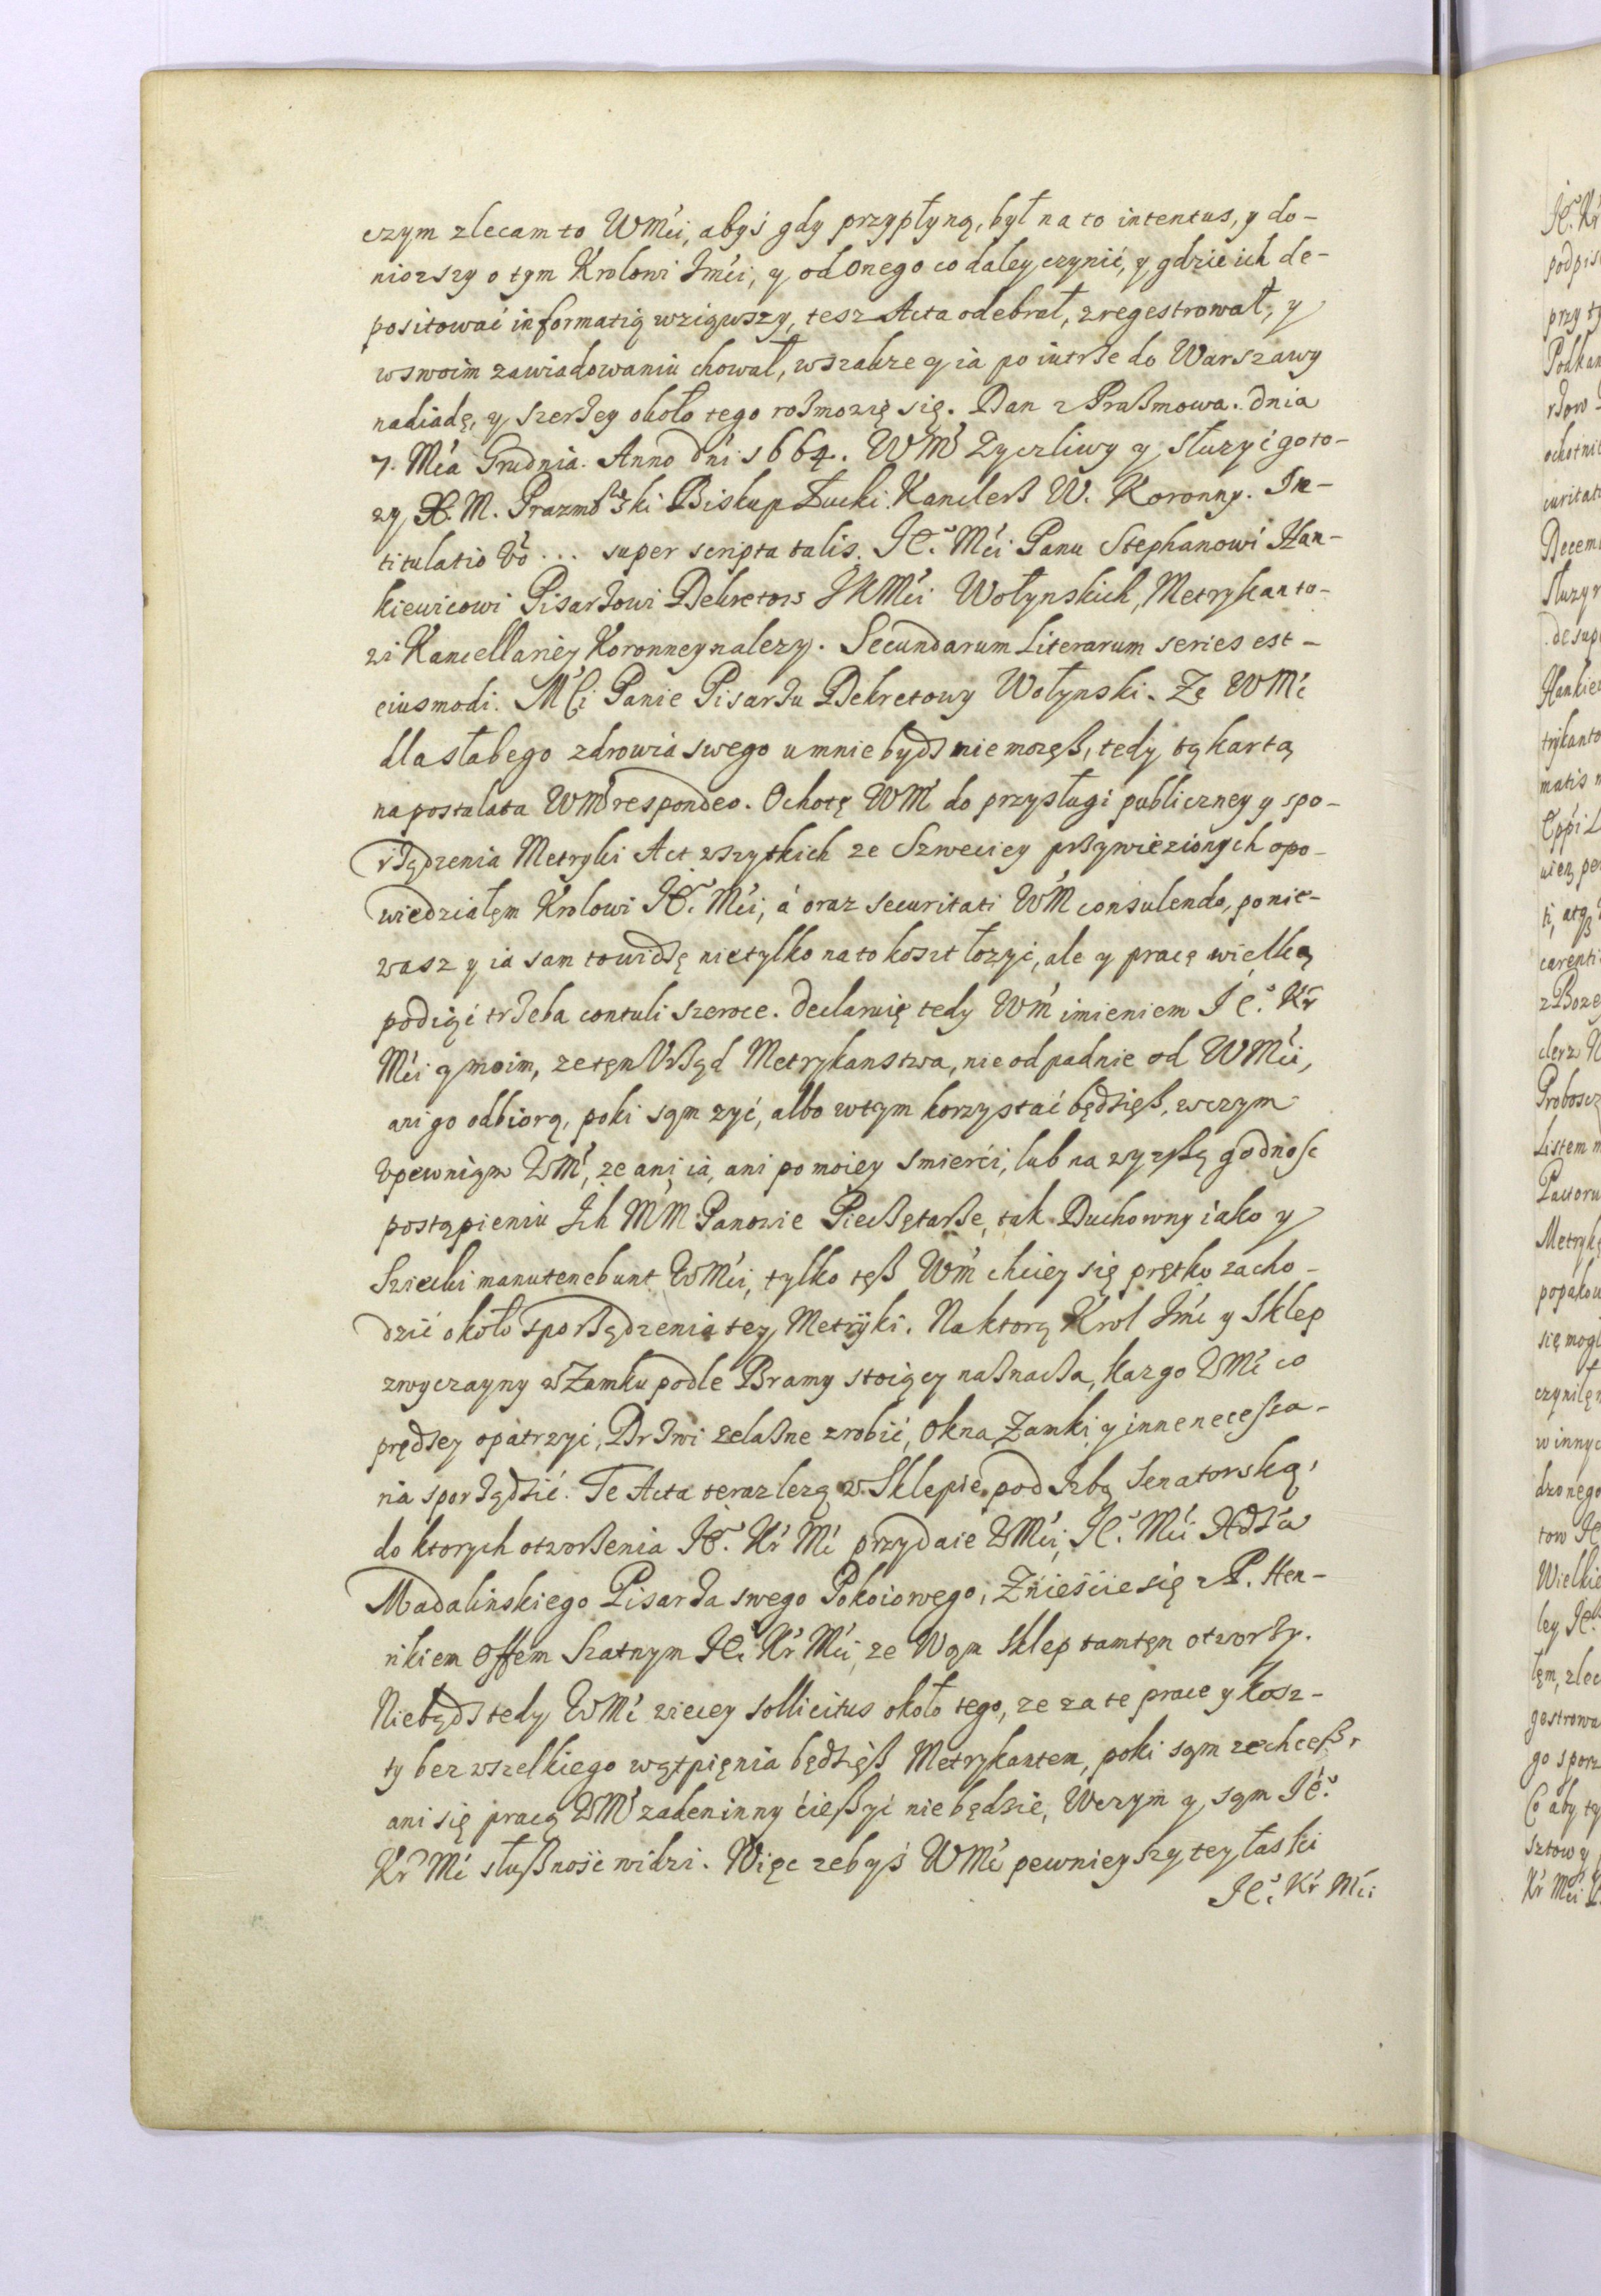 czym zlecam to WMći, abyś gdy przypłyną, był na to intentus, y do-
niozszy o tym Krolowi Jmći, y od onego co daley czynić, y gdzie ich de-
positować informatią wziąwszy, tesz Acta odebrał, zregestrował, y
w swoim zawiadowaniu chował, wszakze y ia po iutrze do Warszawy
nadiadę, y szerzey około tego rozmozię się. Dan z Prażmowa. dnia
7. Mća Grudnia. Anno dni 1664. WM Zyczliwy y słuzyć goto-
zy X. M. Prazmoski Biskup Łucki Kanclerz W. Koronny. In-
titulatio vo ... super scripta talis. Je. Mći Panu Stephanowi Han-
kiewicowi Pisarzowi Dekretow JKMći Wołynskich, Metrykanto-
zi Kancellariey Koronney nalezy. Secundarum Literarum series est -
eiusmodi. Mći Panie Pisarzu Dekretowy Wołynski. Ze WMć
dla słabego zdrowia swego u mnie bydz nie mozęß, tedy tą kartą
na postulata WM respondeo. Ochotę WM do przysługi publiczney y spo-
rządzenia Metryki Act wszytkich ze Szweciey przywiezionych opo-
wiedziałem Krolowi Je. Mći, á oraz securitati WM consulendo, ponie-
wasz y ia sam to widzę nie tylko na to koszt łozyć, ale y pracę wielką
podiąć trzeba contuli szeroce. Declaruię tedy WM imieniem Je. Kr
Mći y moim, ze tęn Urząd Metrykanstwa, nie odpadnie od WMći,
ani go odbiorą, poki sąm zyć, albo w tym korzystać będzięß, w czym
vpewniąm WM, ze ani ia, ani po moiey smierći, lub na wyzßą godnośc
postąpieniu Ich MM Panowie Pieczętarze, tak Duchowny iako y
Sziecki manutenebunt WMći, tylko tęß WM chciey się prętko zacho-
dzić około sporządzenia tey Metryki. Na ktorą Krol Jmć y Sklep
zwyczayny w Zamku podle Bramy stoiący naznacza, kaz go WMć co
prędzey opatrzyć, Drzwi zelazne zrobić, Okna, Zamki y inne necessa-
ria sporządzić. Te Acta teraz lezą w Sklepie pod Izbą Senatorską,
do ktorych otworzenia Je. Kr Mć przydaie WMći, Je. Mći Adama
Madalinskiego Pisarza swego Pokoiowego, Znieście się z P. Hen-
rikiem Offem Szatnym Je. Kr Mći, ze Wąm Sklep tamtęn otworzy.
Nie bądz tedy WMć wiecey sollicitus około tego, ze za te prace y kosz-
ty bez wszelkiego wątpięnia będzięß Metrykantem, poki sąm zechceß,
ani się pracą WM zaden inny ćießyć nie będzie, W czym y sąm Je.
Kr Mć słußność widzi. Więc zebyś WMć pewnieyszy tey łaski
Je. Kr Mći